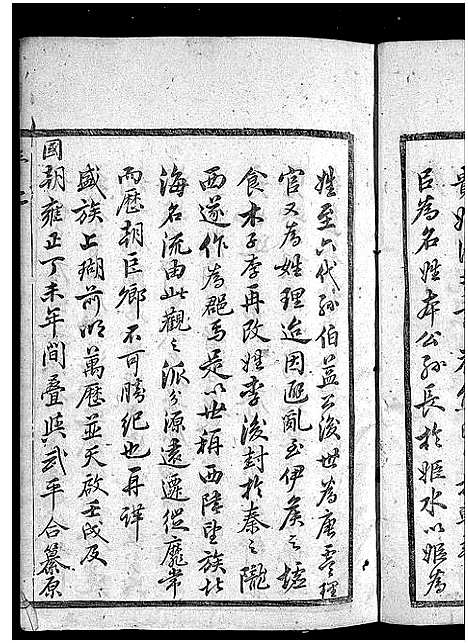 臣為名姓本公孫長於姬水以姬為
姓至六代孫伯益公後世為唐虞理
官又為姓理迨因避亂至伊侯之墟
食木子李再改姓李後封於秦之隴
西遂作為郡焉是以世稱西隴望族北
海名流由此觀之派分源遠遷從靡常
而歷朝巨鄉不可勝紀也再詳
盛族上溯前明萬歷並天啟壬戌及
國朝雍正丁未年間疊與武平合纂原